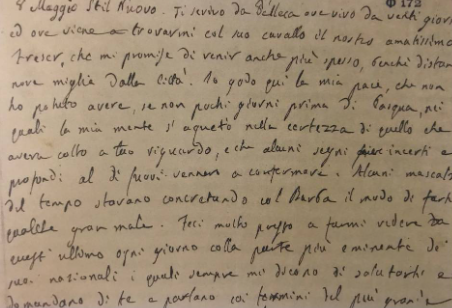 8 Maggio Stil Nuovo. Ti scrivo da Belleca ove vivo da venti giorn
ed ove viene a trovarmi col suo cavallo il nostro amatissimo
che mi promise di venir anche più spesso, benchi distan
nove miglia dalla Città. Io godo qui la mia pace, che non
ho potuto avere, se non pochi giorni prima di Pasqua, nei
quali la mia mente s' aquetò nella certezza di quello che
aveva colto a tuo riguardo, e che alcuni segni incerti e
profondi al di fuori vennero a confermare. Alcuni mascalz
del tempo stavano concretando col Barba il modo di farti
qualche gran male. Feci molto presso a farmi vedere da
quest' ultimo ogni giorno colla parte più eminente dei
suoi nazionali i quali sempre mi dicono di salutarti e
domandano di te e parlano coi termini del più
Φ 172